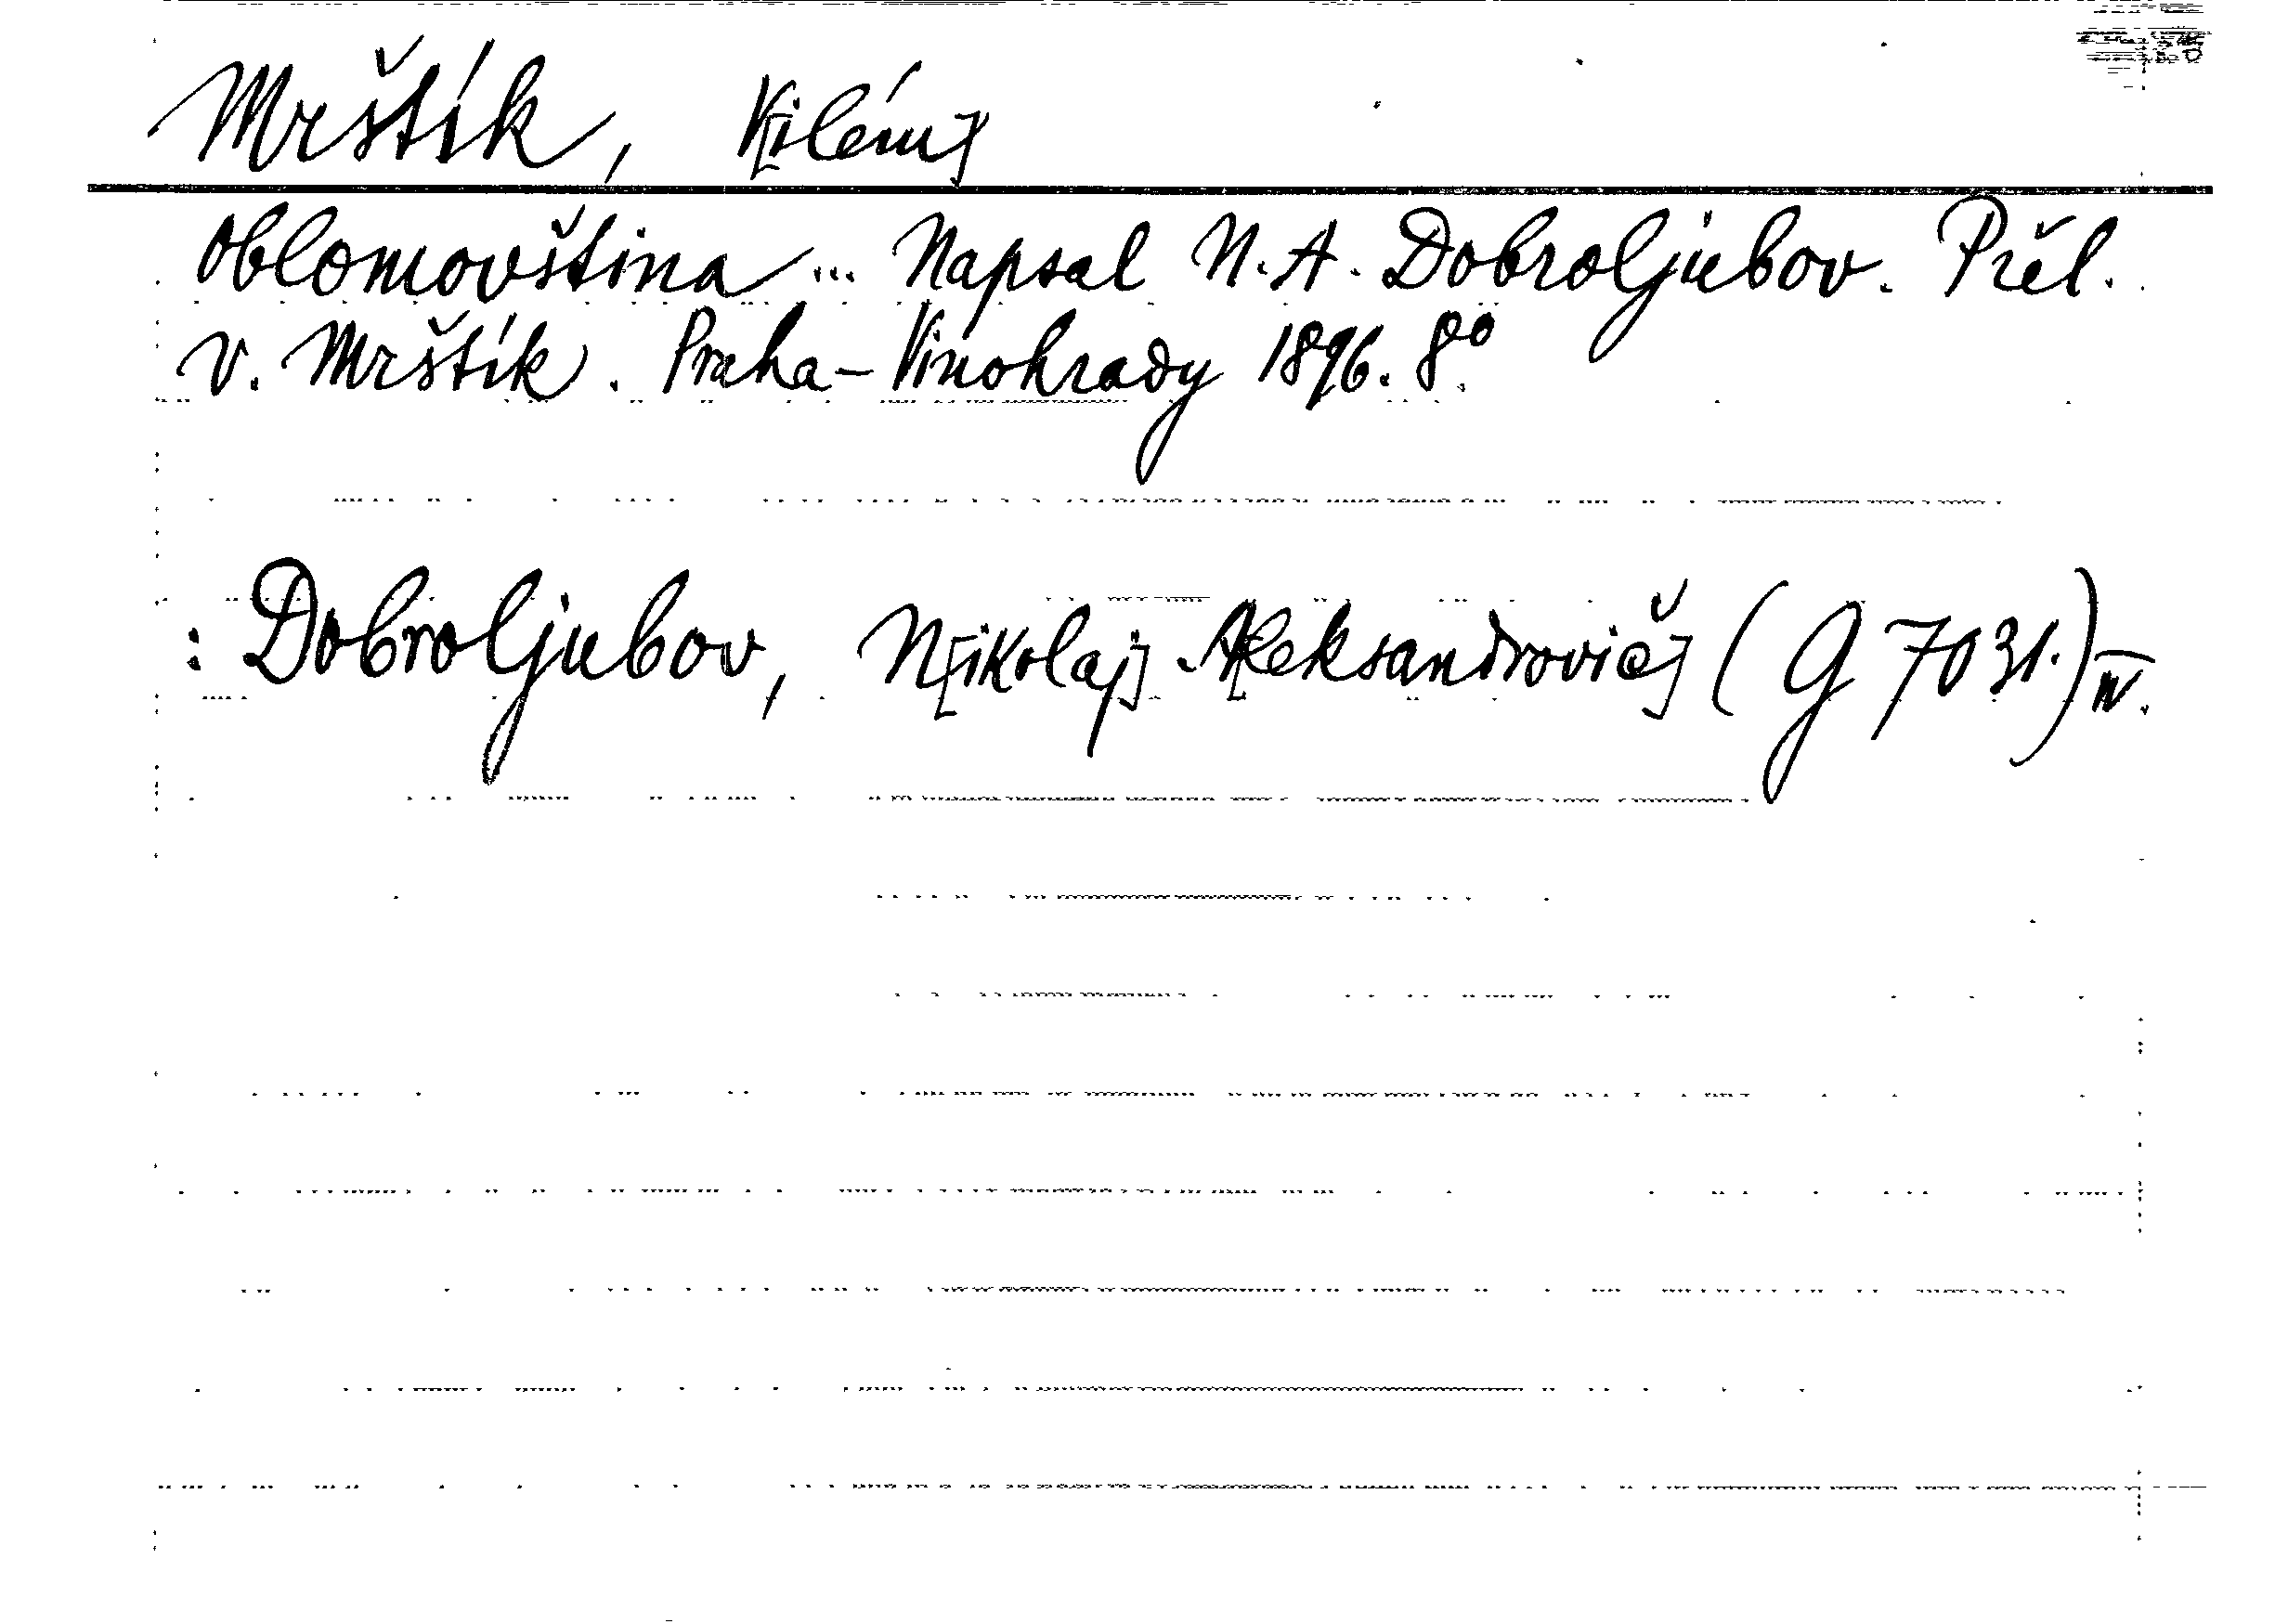 Mrštík, V[ilém]
Oblomovština ... Napsal N. A. Dobroljubov. Přel.
V. Mrštík. Praha-Vinohrady 1896. 8°.
: Dobroljubov, N[ikolaj] A[leksandrovič] (G 7031.) IV.